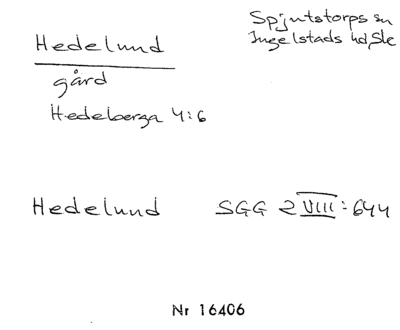 Hedelund
Spjutstorps sn
Ingelstads hd, Sle
gård
Hedeberga 4:6
Hedelund SGG 2 VIII: 644
Nr 16406